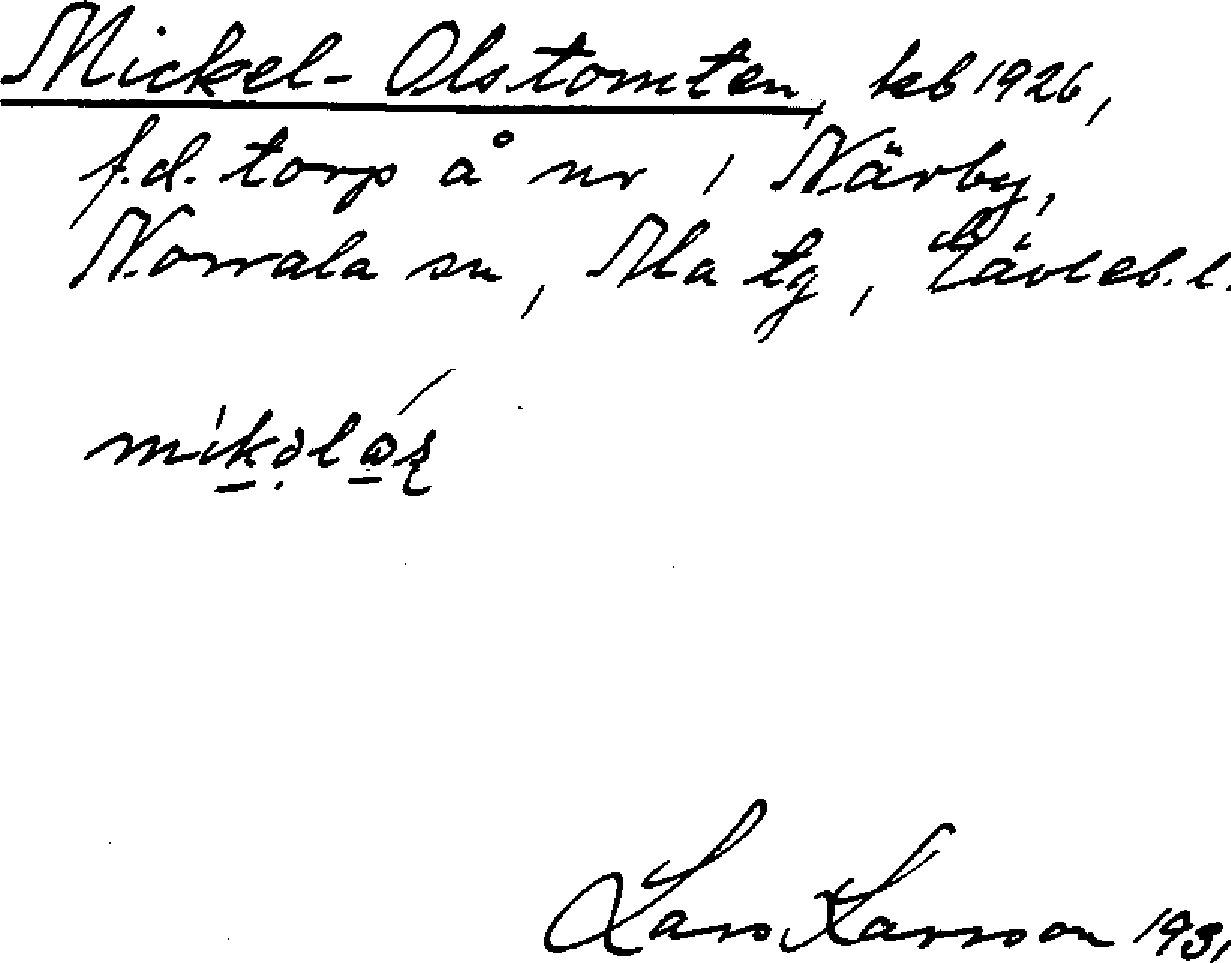 Mickel-Olstomten, kb 1926,
f.d. torp å nr 1 Närby,
Norrala sn, Ala tg, Gävleb. l.
Lars Larsson 1931